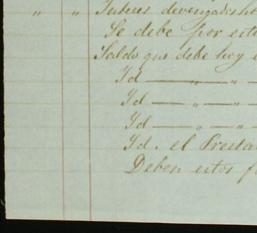 " " Interes devengados h
Se debe por esta
Saldo que debe hoy
Id — " — "
Id — " — "
Id — " — "
Id. el Presta
Deben estos